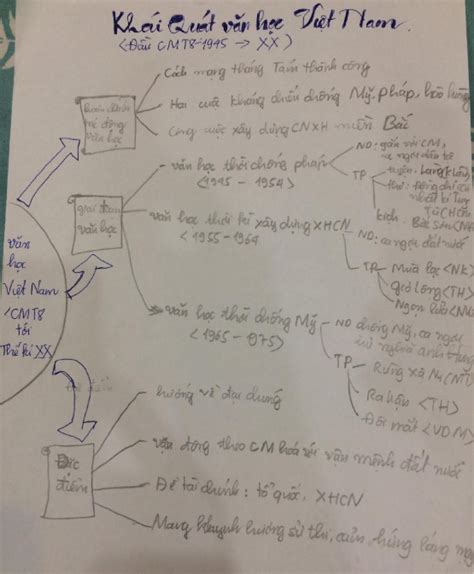 Khái Quát văn học Việt Nam.
(Đầu CMT8-1945 → XX)
văn
học
Việt Nam
<CMT8
tới
Thế kỉ XX
văn học
Cách mạng tháng Tám thành công
Hai cuộc kháng chiến chống Mỹ, pháp,
Công cuộc xây dựng CNXH miền Bắc
giai đoạn
văn học
- văn học thời chống pháp
<1945 - 1954)
ND: gắn với CM,
TP
văn học thời kì xây dựng XHCN
<1955 - 1964
ND: ca ngợi đất nước
TP - Mùa lạc <NK>
gió lộng <TH>
văn học thời chống Mỹ
<1965 - 1975)
ND chống Mỹ, ca ngợi
TP - Rừng xà Nu
Ra trận <TH>
Đôi mắt <VDM>
Đặc
điểm
hướng về đại chúng
vận động theo CM hoá với vận mệnh đất nước
Đề tài chính: tổ quốc, XHCN
Mang khuynh hướng sử thi, cảm hứng lãng mạn